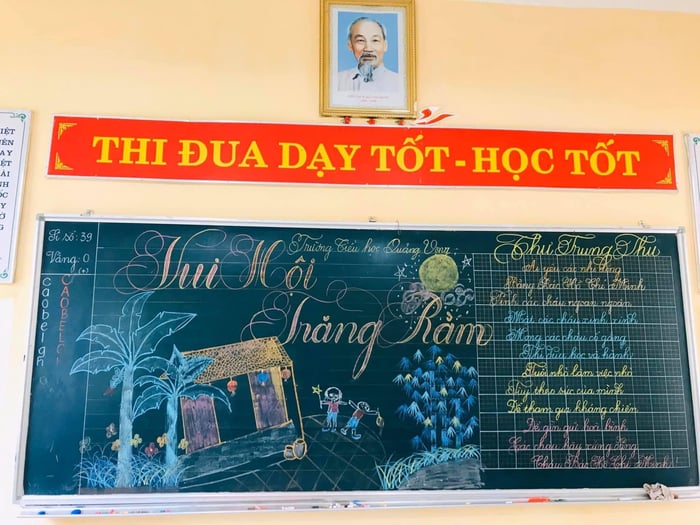 VIỆT
THI ĐUA DẠY TỐT - HỌC TỐT
Sĩ số: 39
Vắng: 0
(+)
caobelgh
CAOBELGI
Trường Tiểu học Quảng Vọng
Vui Hội
Trăng Rằm
Thư Trung Thu
Ai yêu các nhi đồng
Bằng Bác Hồ Chí Minh
Tính các cháu ngoan ngoãn
Mặt các cháu xinh xinh
Mong các cháu cố gắng
Thi đua học và hành
Tuổi nhỏ làm việc nhỏ
Tùy theo sức của mình
Để tham gia kháng chiến
Để gìn giữ hoà bình
Các cháu hãy xứng đáng
Cháu Bác Hồ Chí Minh!